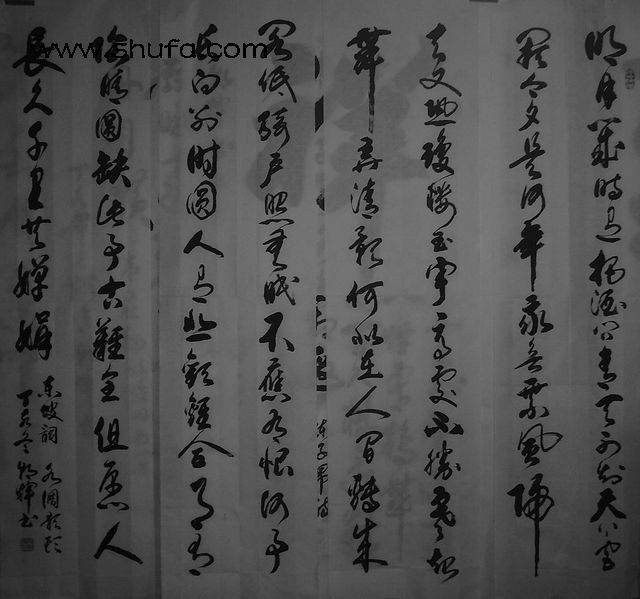 www.shufa.com
明月幾時有把酒問青天不知天上宮
闕今夕是何年我欲乘風歸
去又恐瓊樓玉宇高處不勝寒起
舞弄清影何似在人間轉朱
閣低綺戶照無眠不應有恨何事
長向別時圓人有悲歡離合月有
陰晴圓缺此事古難全但願人
長久千里共嬋娟
東坡詞 水調歌頭
丁亥冬 輝書